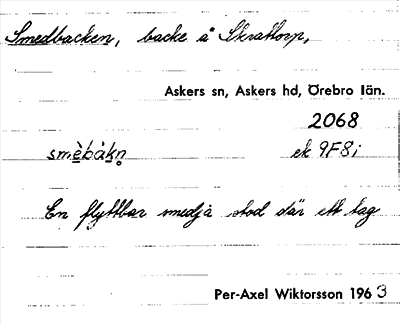 Smedbacken, backe å Skrattorp,
Askers sn, Askers hd, Örebro län.
2068
smèbàkn̥ ek 9F8i
En flyttbar smedja stod där ett tag
Per-Axel Wiktorsson 1963